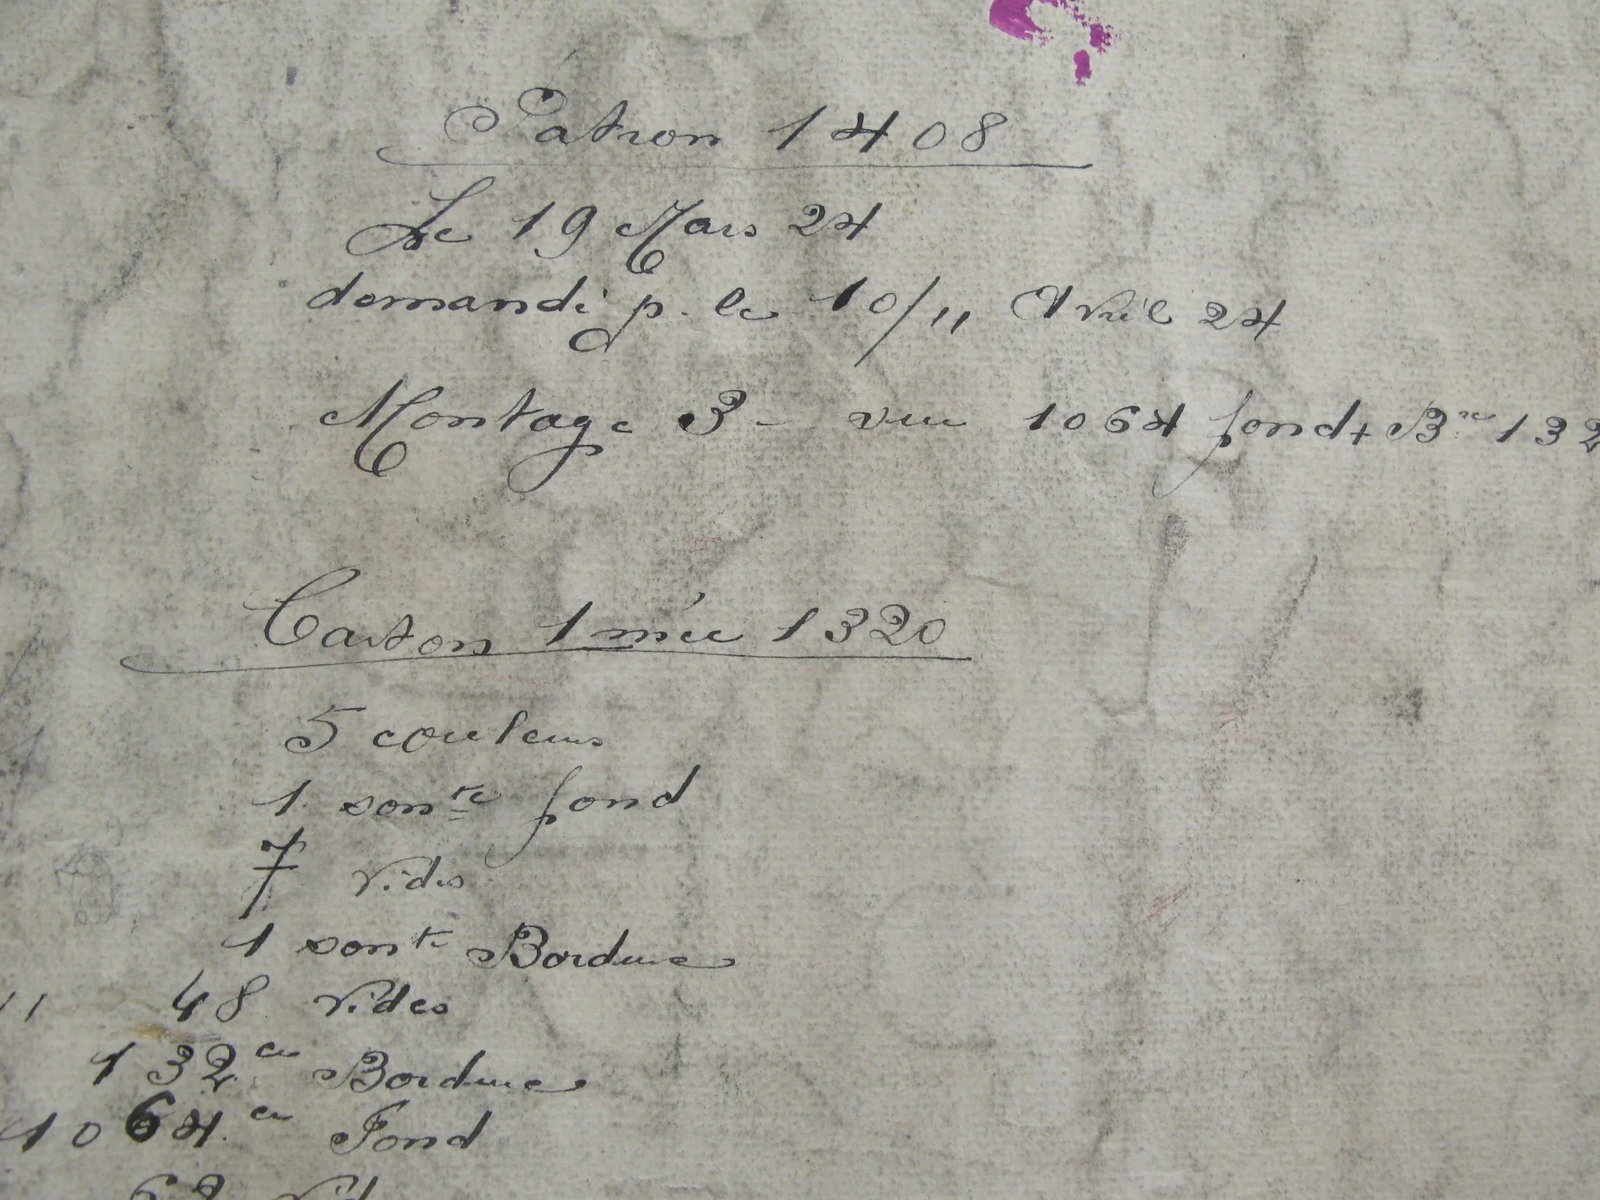 Patron 1408
Le 19 Mars 24
demandé p. le 10/11 Avril 24
Montage 3 - 1064 fond + Bre 132
Carton 1 mée 1320
5 couleurs
1 sonte fond
7 vides
1 sonte Bordure
11 48 vides
132 cs Bordure
1064 cs Fond